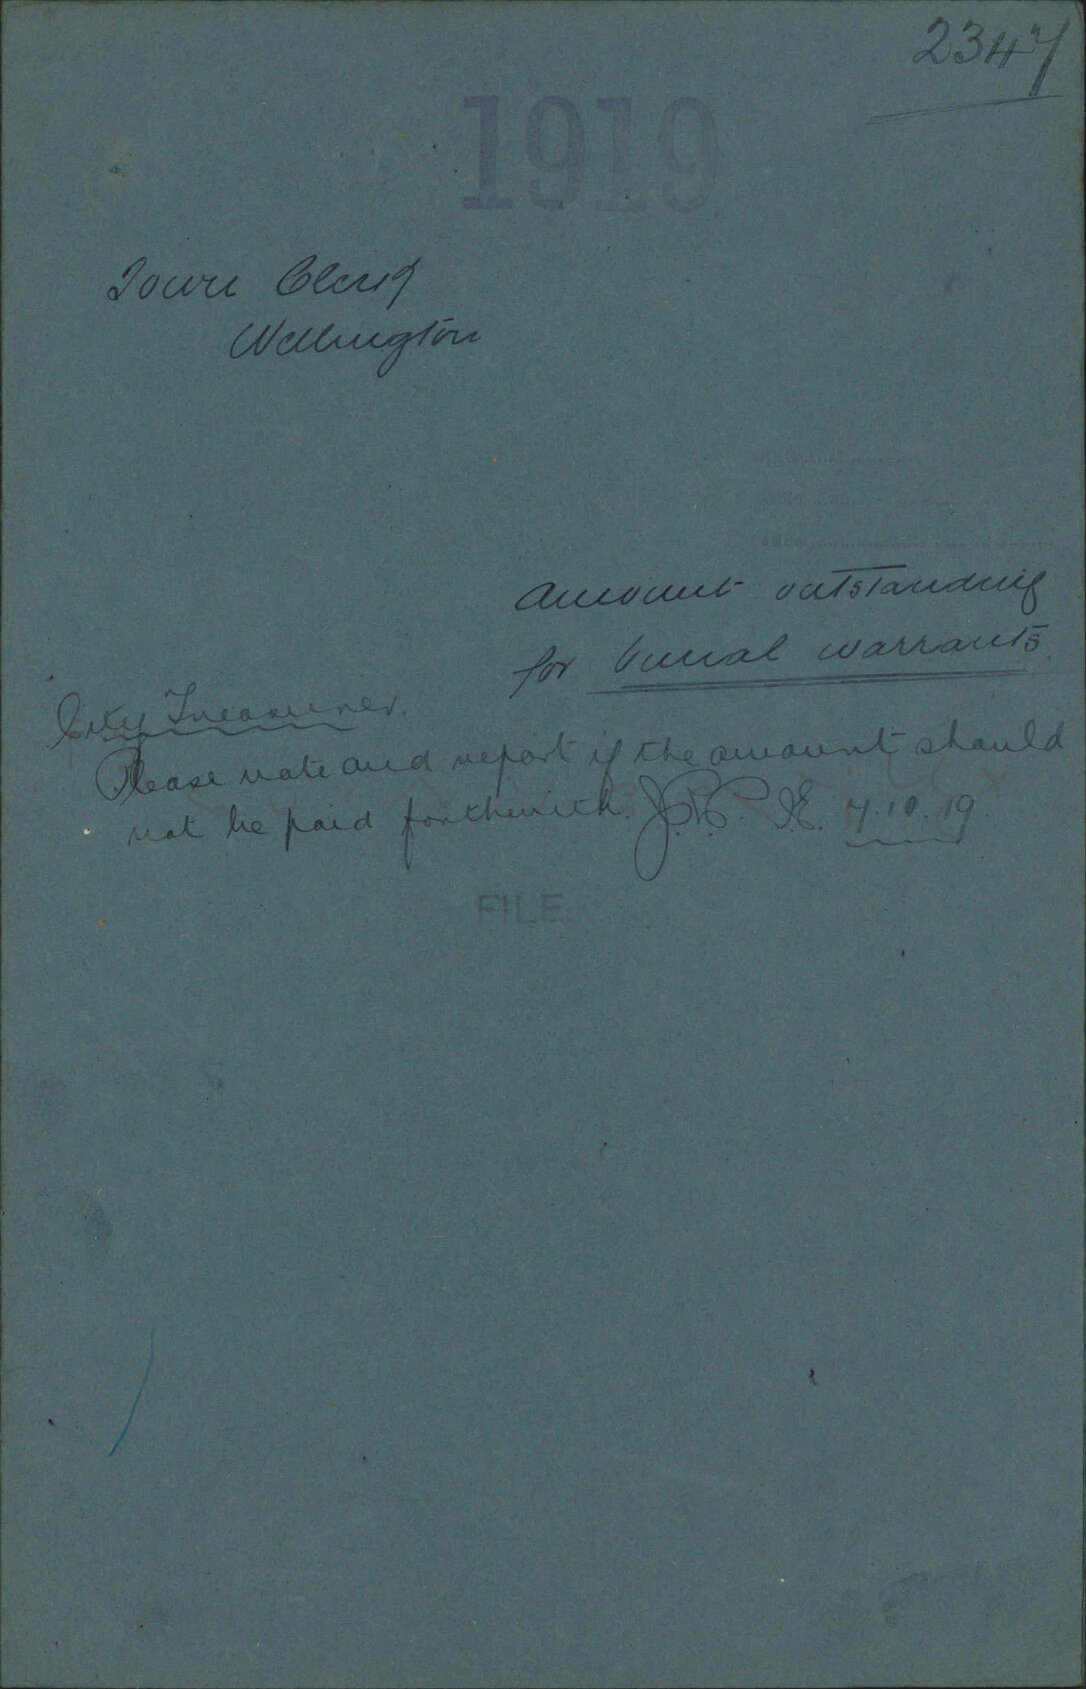 2347
1919
Town Clerk
Wellington
Amount outstanding
for burial warrants
City Treasurer.
Please note and report if the amount should
not be paid forthwith. 7.10.19
FILE